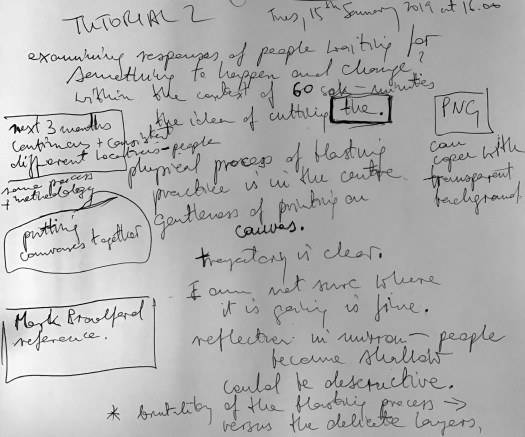 TUTORIAL 2
Tues, 15th January 2019 at 16.00
examining responses of people waiting for
something to happen and change?
within the context of 60 minutes
the idea of cutting the.
next 3 months
continuous + consistent
different locations - people
same process
+ methodology
putting
canvases together
PNG
can
cope with
transparent
background.
physical process of blasting
practice is in the centre
Gentleness of printing on
canvas.
trajectory is clear.
I am not sure where
it is going is fine.
Mark Bradford
reference.
reflection in mirror - people
become shallow
could be destructive.
* brutality of the blasting process →
versus the delicate layers,